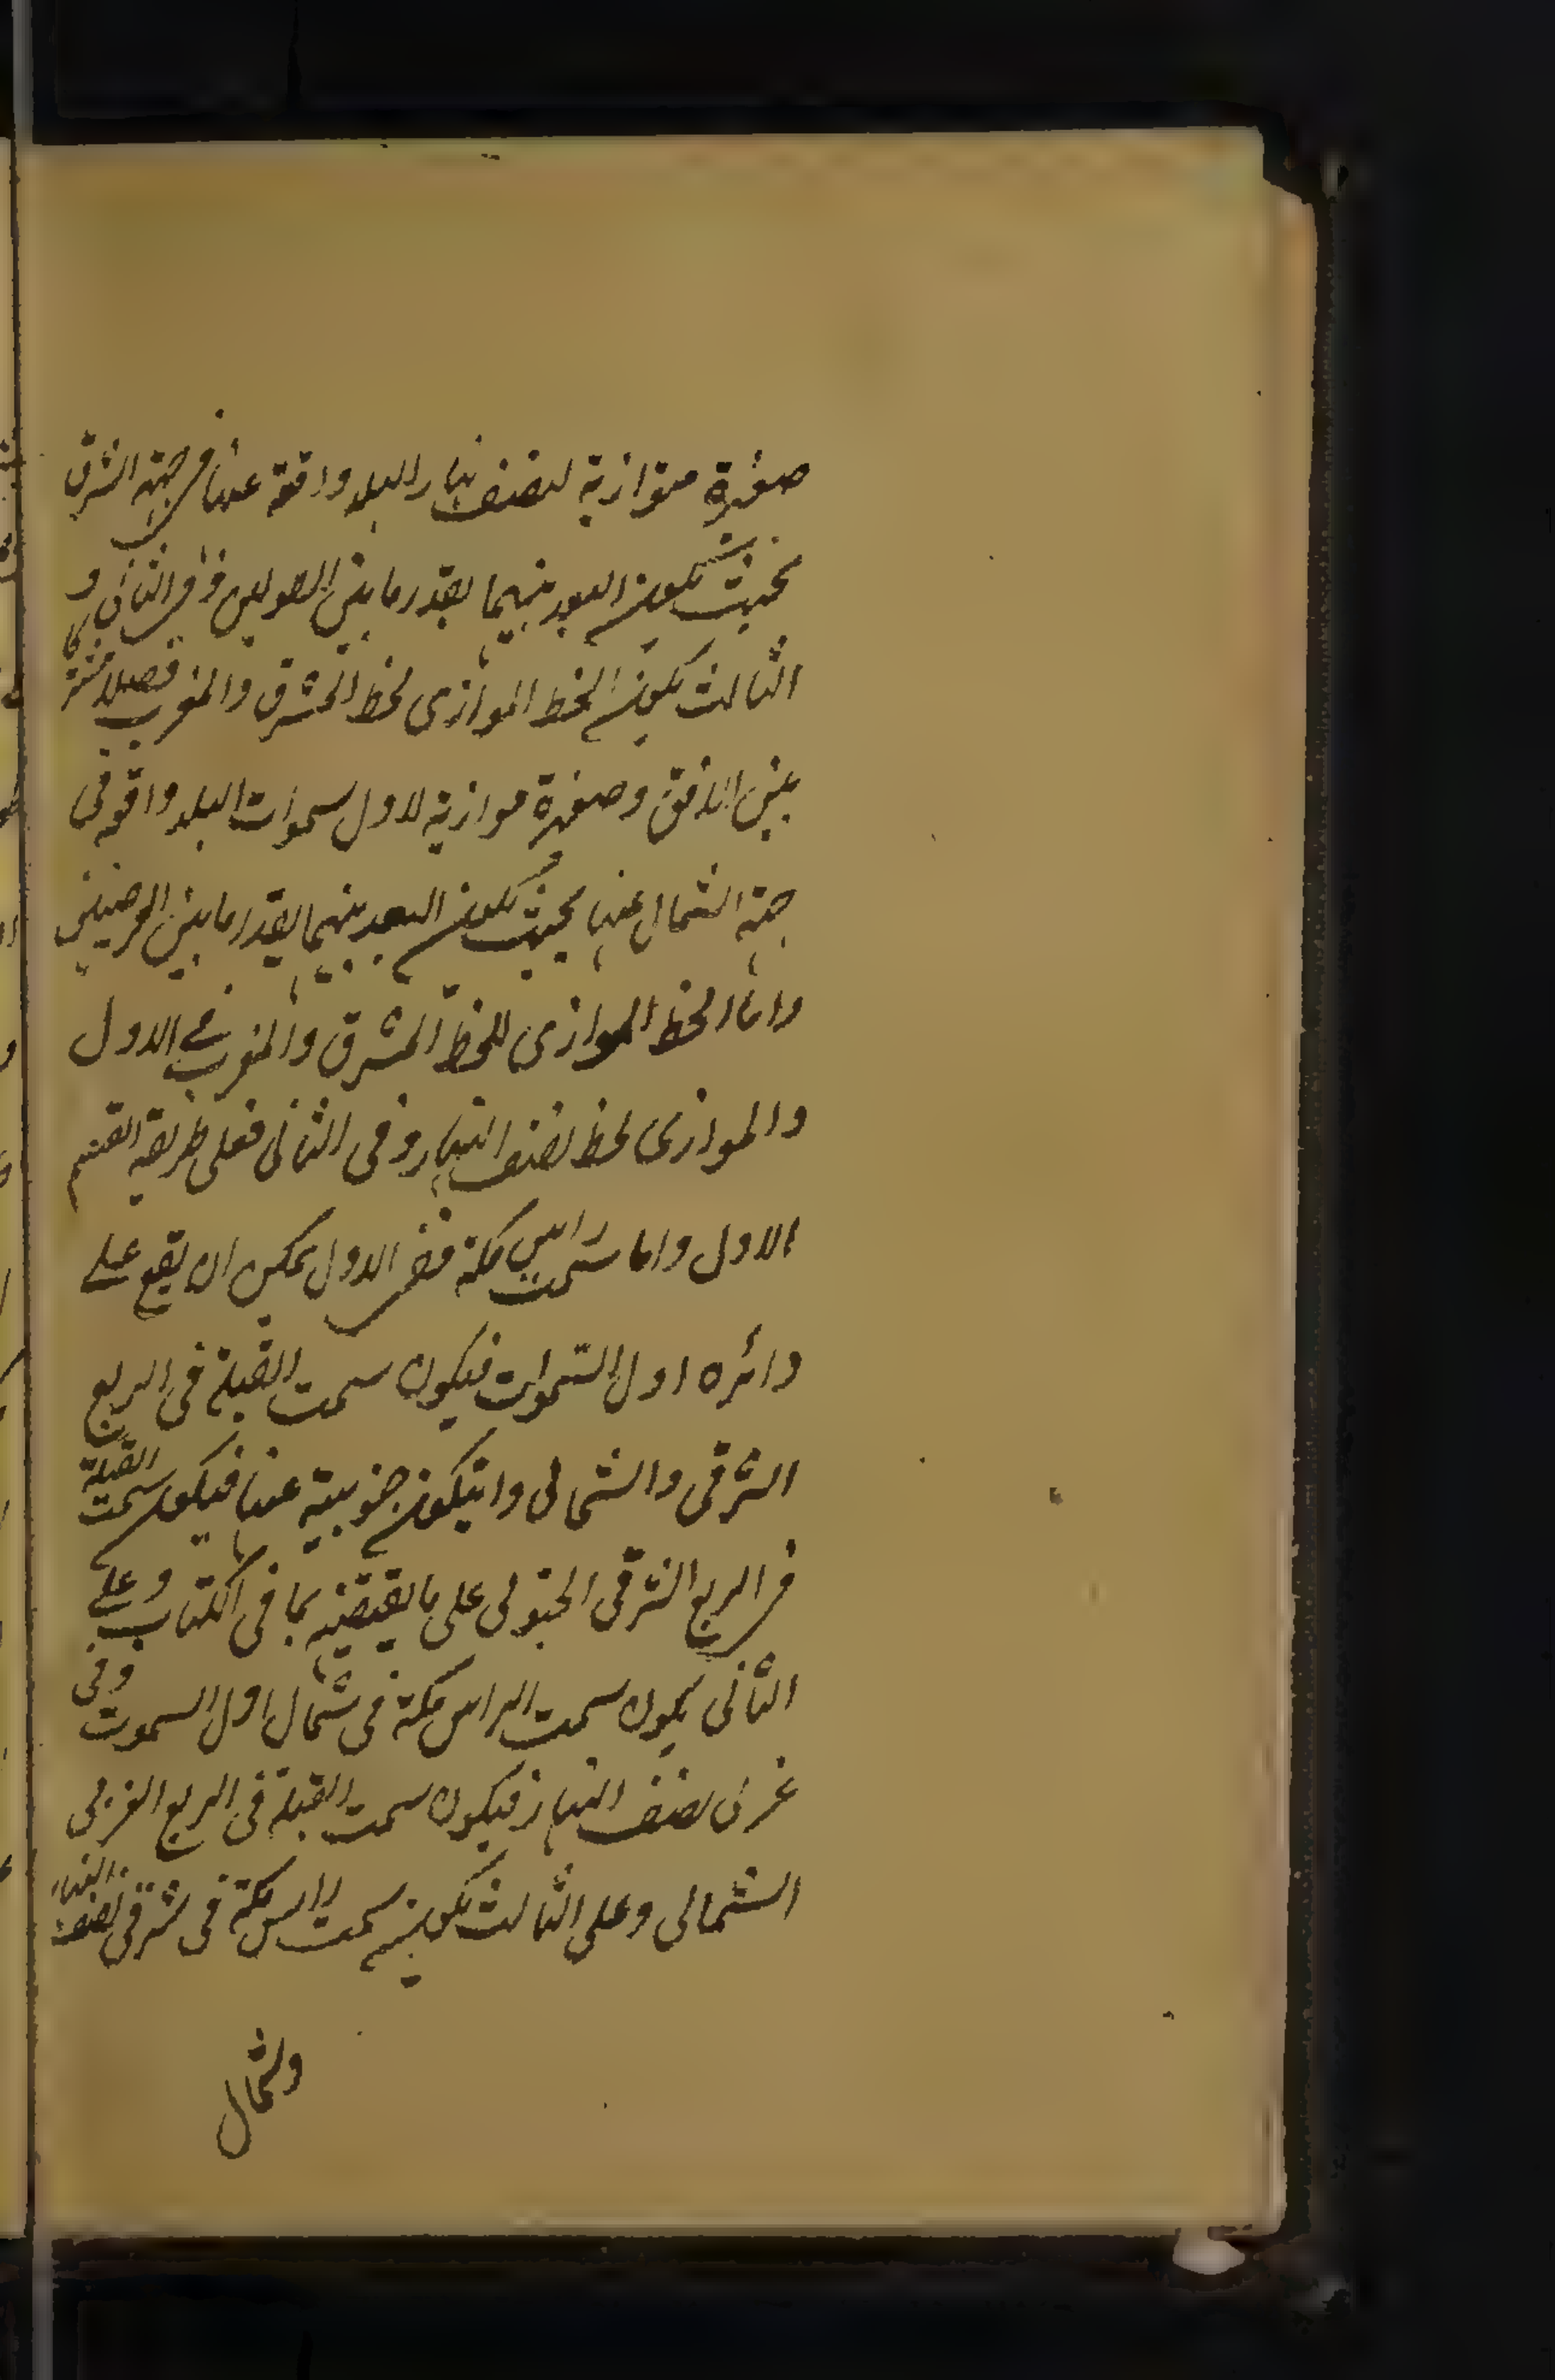 صغيرة متوازية لنصف نهار البلد واقعة عنها في جهة الشرق
بحيث يكون البعد بينهما بقدر ما بين الطولين وفي الثاني و
الثالث يكون الخط الموازى لخط المشرق والمغرب فصلا مشتركا
بين الافق وصغيرة موازية لاول سموات البلد واقعة في
جهة الشمال عنها بحيث يكون البعد بينهما بقدر ما بين العرضين
واما الخط الموازى للخط المشرق والمغرب في الاول
والموازى لخط نصف النهار وفي الثاني فعلى طريقة القسم
الاول واما سمت راس مكة ففي الاول يمكن ان يقع على
دائره اول السموات فيكون سمت القبلة في الربع
الشرقى والشمالى وان يكون جنوبية عنها فيكون سمت القبلة
في الربع الشرقى الجنوبى على ما يقتضيه بما في الكتاب وعلى
الثانى يكون سمت الراس مكة في شمال اول السموت وفى
غربى نصف النهار فيكون سمت القبلة في الربع الغربى
الشمالى وعلى الثالث يكون سمت راس مكة في شرقى نصف النهار
وشمال